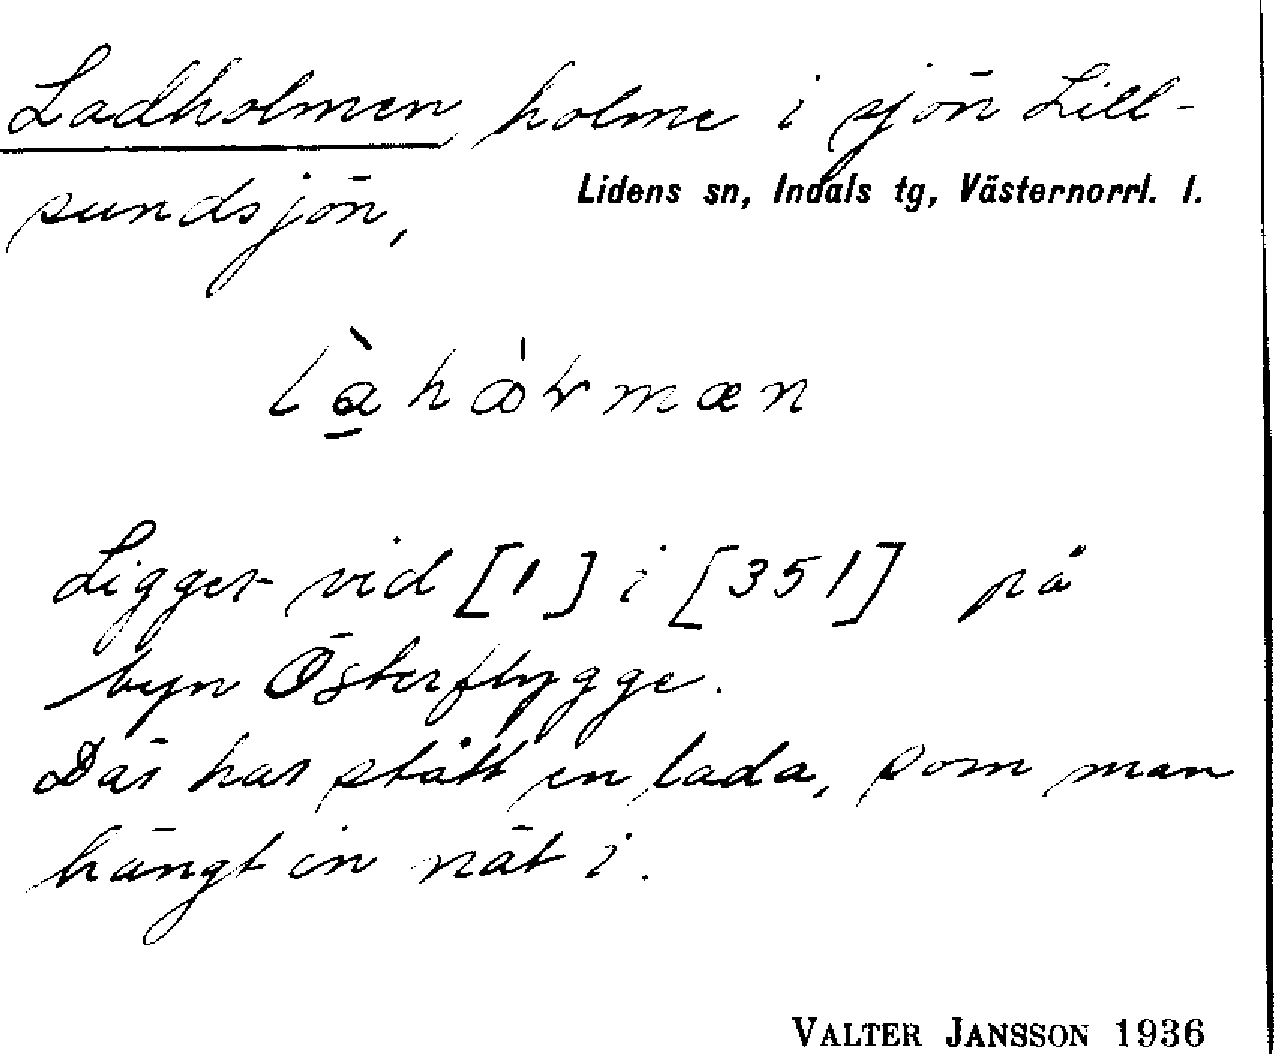 Ladholmen holme i sjön Lill-
sundsjön,
Lidens sn, Indals tg, Västernorrl. l.
Ligger vid [1] i [351] på
byn Österflygge.
Där har stått en lada, som man
hängt in nät i.
VALTER JANSSON 1936